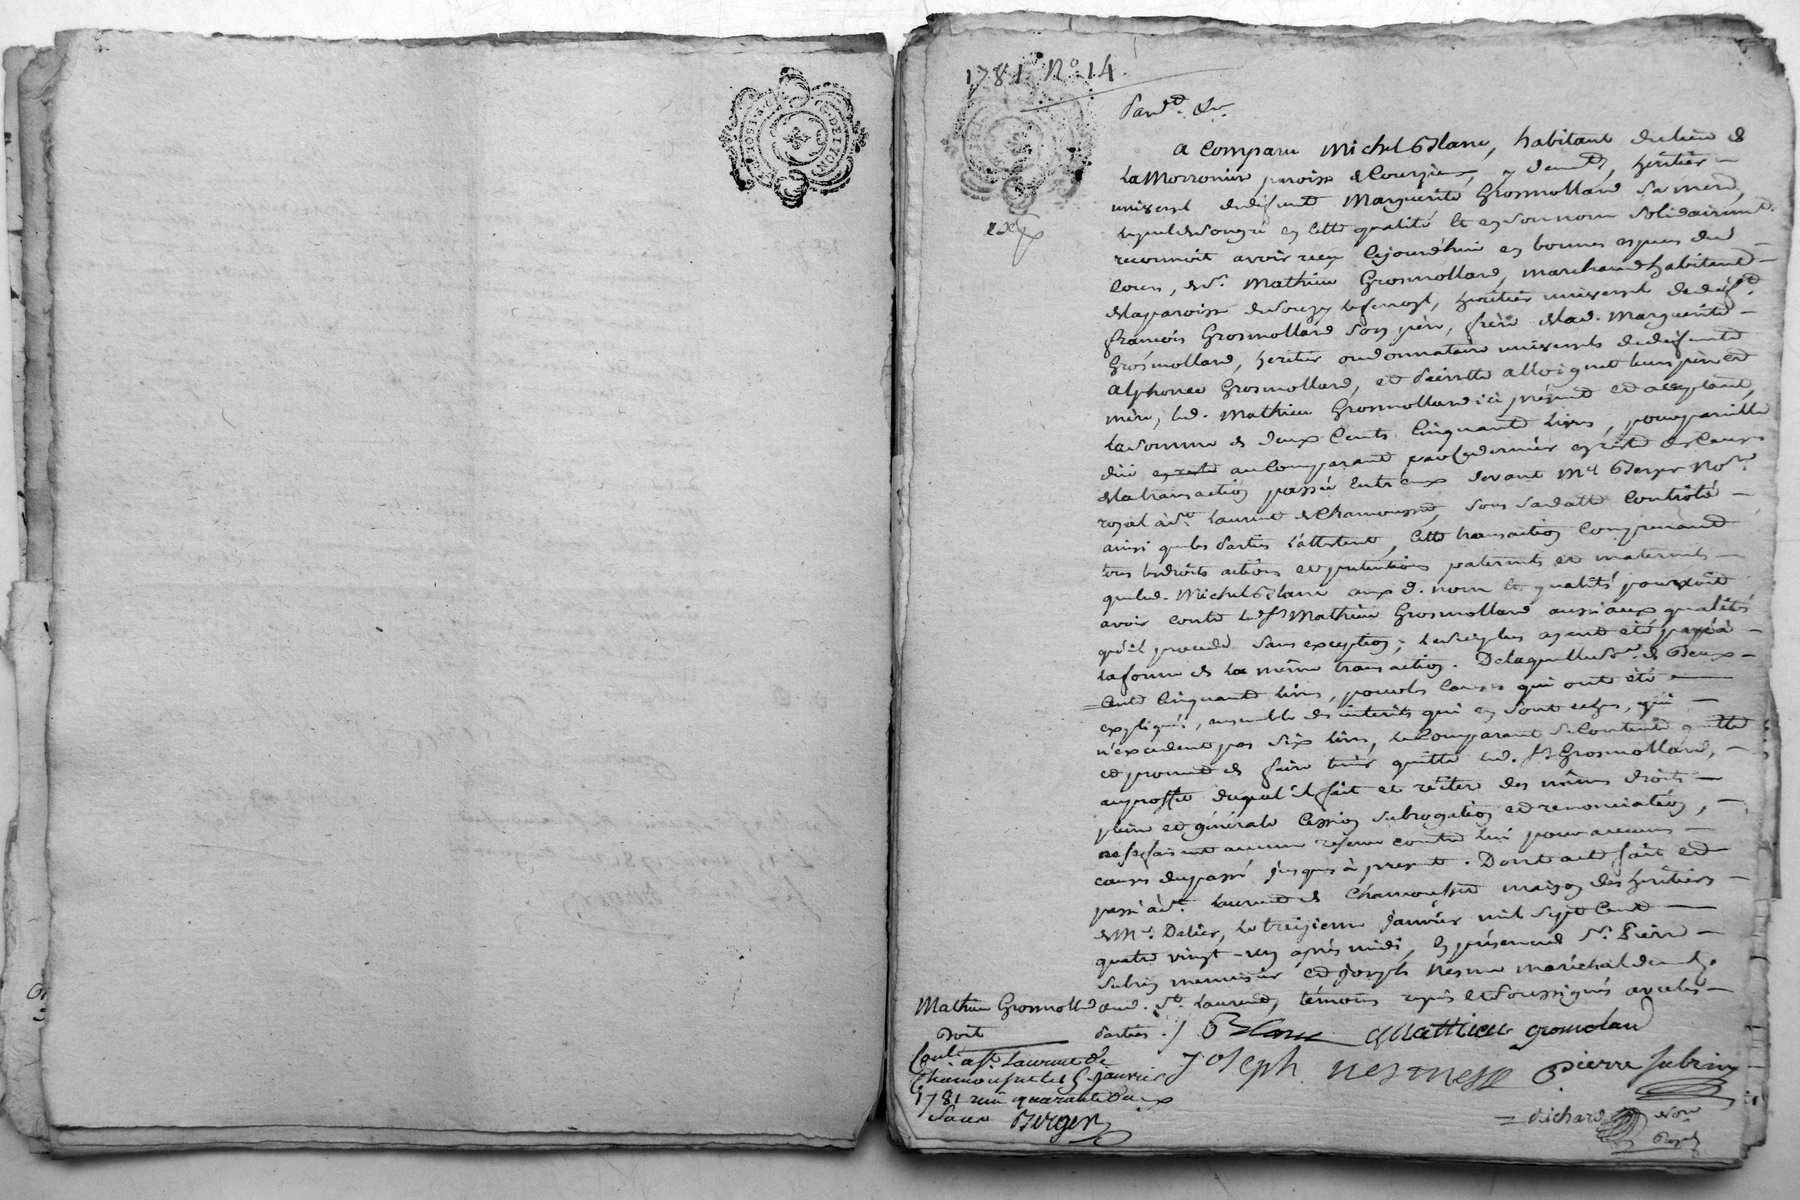 G. DE LYON
1781. N.° 14.
Pard.t &c.
a Comparu Michel Blanc, habitant du lieu de
La Morronier paroisse de Courzieu, y demt, héritier
universel de défunte Marguerite Grosmolland sa mere,
lequel de son gré en cette qualité et en son nom solidairemt
reconnoit avoir reçu cejourd'hui en bonnes especes du
Cours, de Sr. Mathieu Grosmolland, marchand habitant
de la paroisse de Souzy, héritier universel de déft
françois Grosmolland son père, frère de lad. Marguerite
Grosmolland, heritier ou donnataire universels de défunts
Alphonce Grosmolland, et Pierrette alloignet leurs père et
mère, led. Mathieu Grosmolland ici présent et acceptant,
la somme de deux Cents Cinquante livres, pour pareille
due au Comparant par ce dernier en reste des Causes
de la transaction passée entr'eux devant Me Berger Nore
royal à St. Laurent de Chamousset, sous sa datte Contrôlé
ainsi que les Parties l'attestent, cette transaction Comprenant
tous les droits actions et prétentions paternels et maternels
que led. Michel Blanc aux d. nom et qualité pouvoit
avoir contre led. Sr Mathieu Grosmolland aussi aux qualités
qu'il procede sans exception; le surplus ayant été payé à
la forme de la même transaction. De laquelle so.e de Deux
Cents Cinquante livres, pour les Causes qui ont été
expliqué, ensemble des interets qui en sont échus, qui
n'excedent pas six livres, le Comparant se Contente quitte
et promet de faire tenir quitte led. Sr Grosmolland,
au proffit duquel il fait et réitere des mêmes droits
pleine et générale Cession subrogation et renonciation,
ne se faisant aucune reserve contre lui pour aucunes
causes du passé jusques à present. Dont acte fait et
passé à St. Laurent de Chamousset maison des héritiers
de Me. Delier, le treizieme janvier mil sept Cent
quatre vingt-un après midi, en présence de Sr. Pierre
Subrin menuisier et Joseph Nesme maréchal demt
aud. St. Laurent, témoins requis et soussignés avec les
Parties ./.
Blanc Mathieu gromoland
Joseph nesme Pierre Subrin
Richard Nore
Royal
Mathieu Grosmolld
Doit
Conlé. a St. Laurent de
Chamousset le 15 janvier
1781 reçu quarante deux
sous Berger